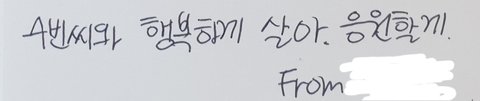 수빈씨와 행복하게 살아. 응원할게.
From